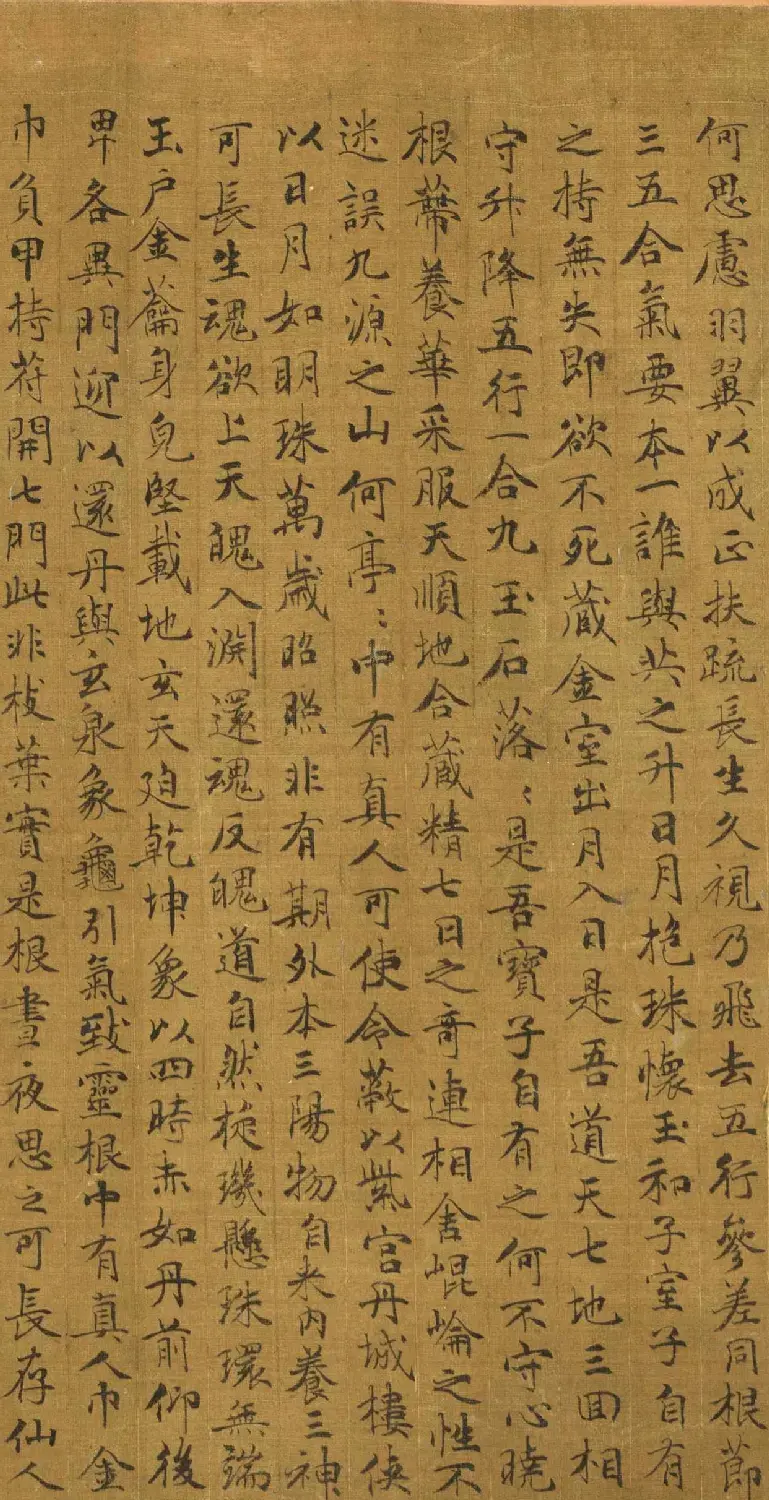 何思慮羽翼以成正扶疏長生久視乃飛去五行參差同根節
三五合氣要本一誰與共之升日月抱珠懷玉和子室子自有
之持無失即欲不死藏金室出月入日是吾道天七地三回相
守升降五行一合九玉石落〻是吾寶子自有之何不守心曉
根蔕養華采服天順地合藏精七日之奇連相舍崐崘之性不
迷誤九源之山何亭〻中有真人可使令蔽以紫宮丹城樓俠
以日月如明珠萬歲昭照非有期外本三陽物自来內養三神
可長生魂欲上天魄入淵還魂反魄道自然旋璣懸珠環無端
玉戶金蘥身皃堅載地玄天迫乾坤象以四時赤如丹前仰後
卑各異門迎以還丹與玄泉象龜引氣致靈根中有真人巾金
巾負甲持苻開七門此非枝葉實是根晝夜思之可長存仙人